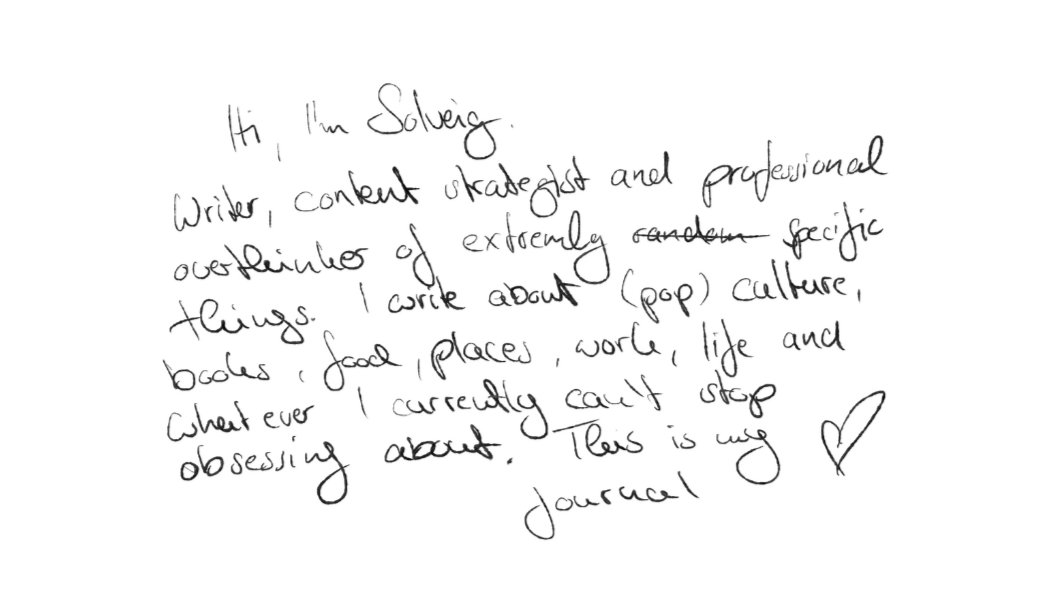 Hi, I'm Solveig.
Writer, content strategist and professional
overthinker of extremly random specific
things. I write about (pop) culture,
books, food, places, work, life and
what ever I currently can't stop
obsessing about. This is my
journal